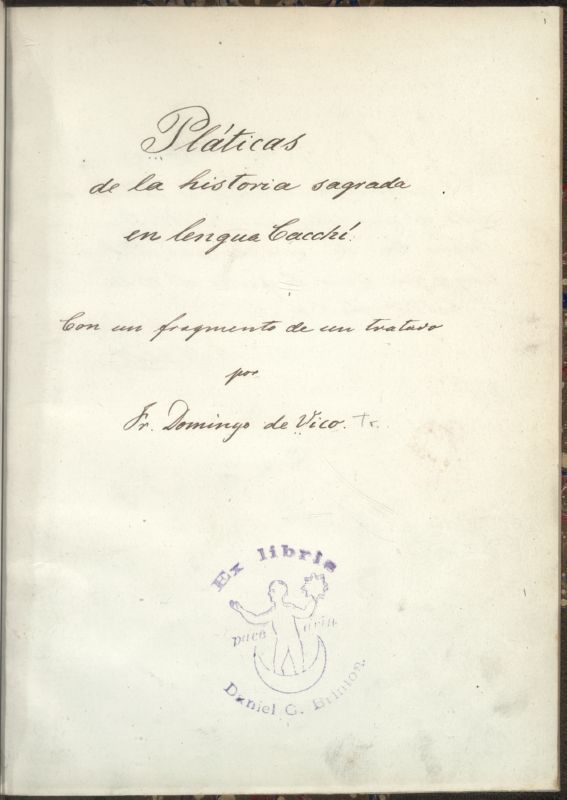 1
Pláticas
de la historia sagrada
en lengua Cacchí.
Con un fragmento de un tratado
por
Fr. Domingo de Vico. Tr.
Ex libris
Daniel G. Brinton.